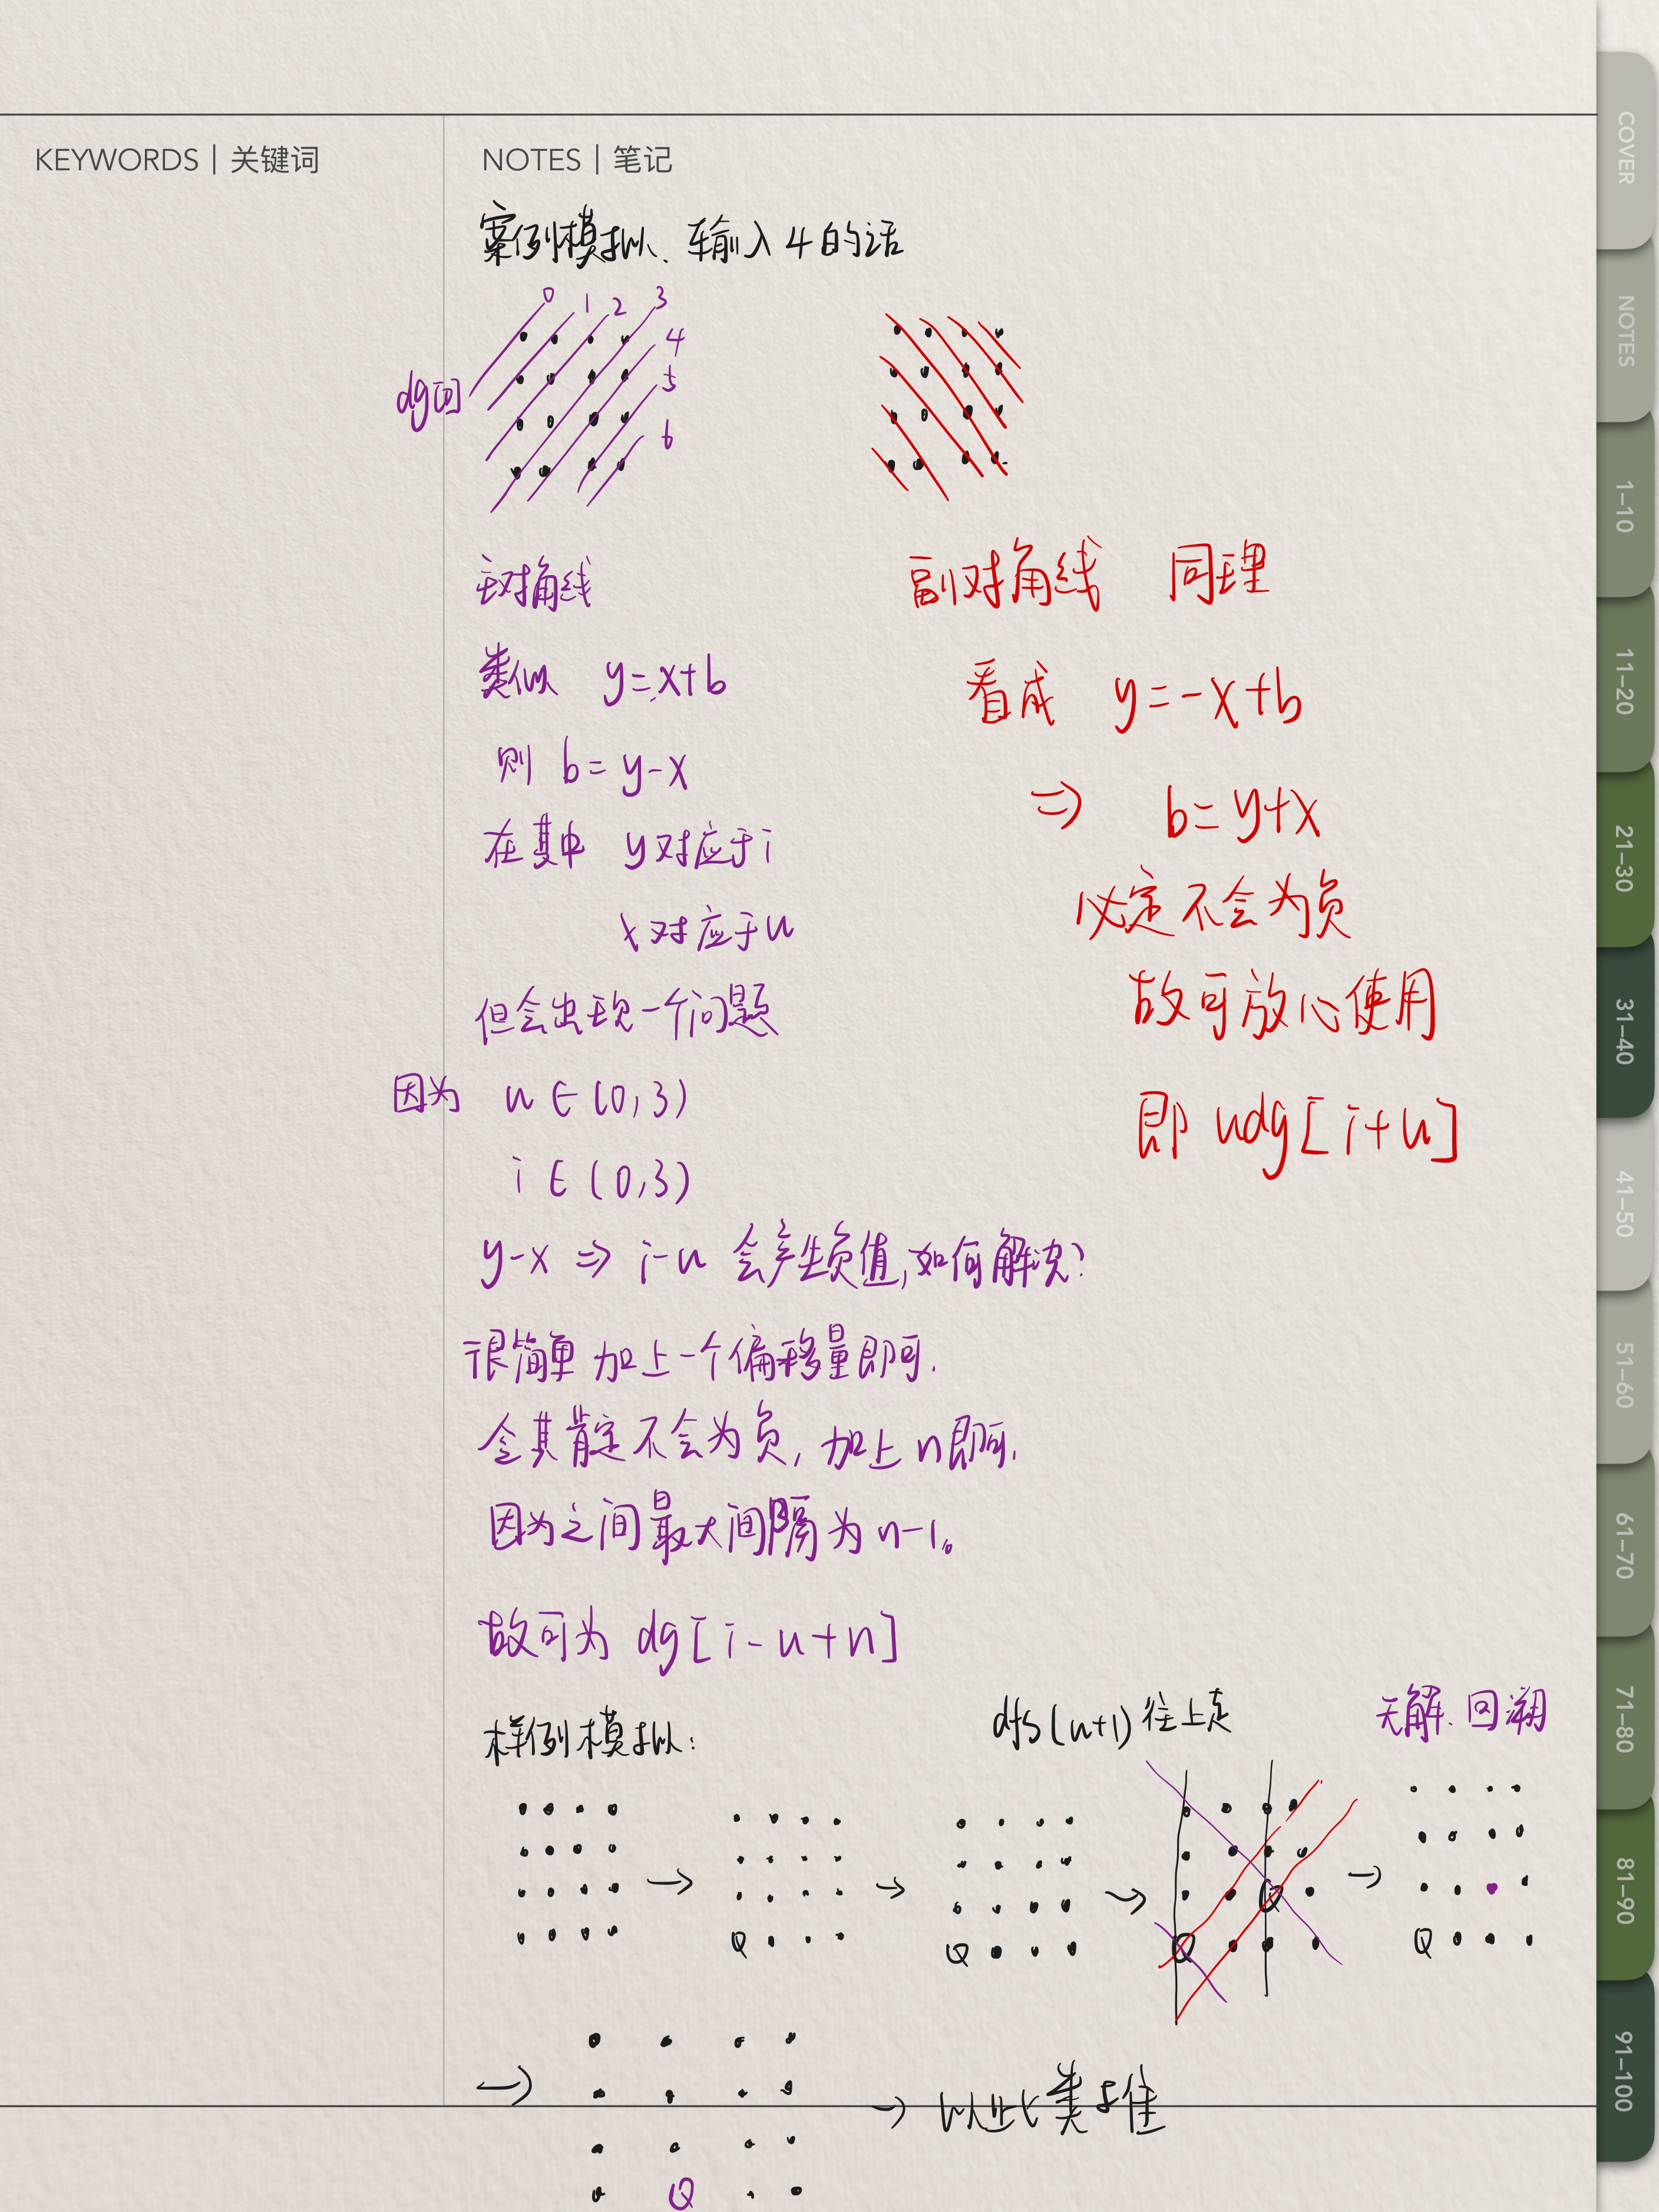 KEYWORDS | 关键词
NOTES | 笔记
案例模拟、输入4的话
0 1 2 3
4
5
6
主对角线
类似 y=x+b
则 b=y-x
在其中 y对应于i
x对应于u
但会出现一个问题
因为 u∈(0,3)
i∈(0,3)
y-x ⇒ i-u 会产生负值,如何解决?
很简单 加上一个偏移量即可.
令其肯定不会为负, 加上n即可.
因为之间最大间隔为n-1。
故可为 dg[i-u+n]
副对角线 同理
看成 y=-x+b
⇒ b=y+x
必定不会为负
故可放心使用
即 udg[i+u]
样例模拟:
dfs(u+1)往上走
无解.回溯
→ → → →
Q Q Q Q Q
→
Q
→ 以此类推
COVER
NOTES
1–10
11–20
21–30
31–40
41–50
51–60
61–70
71–80
81–90
91–100